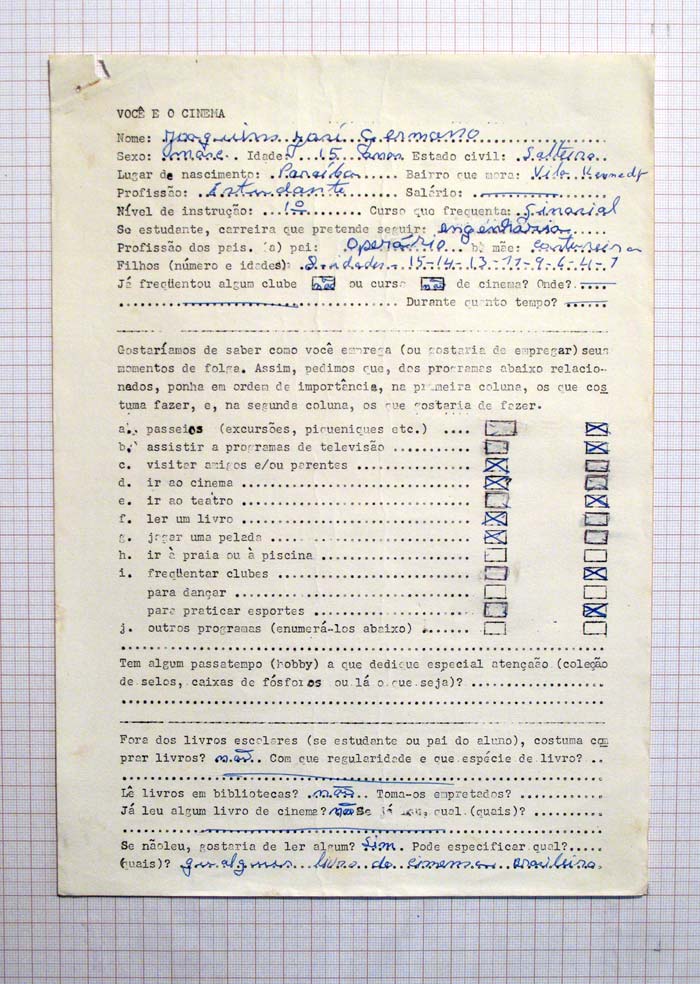 VOCÊ E O CINEMA
Nome: Joaquim José Germano
Sexo: masc. Idade: 15 anos Estado civil: Solteiro
Lugar de nascimento: Paraíba Bairro que mora: Vila Kennedy
Profissão: Estudante Salário:
Nível de instrução: 1º Curso que frequenta: Ginacial
Se estudante, carreira que pretende seguir: engenhária
Profissão dos pais. (a) pai: Operário b) mãe: costureira
Filhos (número e idades): 8 idades - 15-14-13-11-9-6-4-1
Já freqüentou algum clube não ou curso não de cinema? Onde? ....
Durante quanto tempo?
Gostaríamos de saber como você emprega (ou gostaria de empregar) seus
momentos de folga. Assim, pedimos que, dos programas abaixo relacio-
nados, ponha em ordem de importância, na primeira coluna, os que cos
tuma fazer, e, na segunda coluna, os que gostaria de fazer.
a. passeios (excursões, piqueniques etc.) .... X
b. assistir a programas de televisão ........... X
c. visitar amigos e/ou parentes ................ X
d. ir ao cinema ................ X
e. ir ao teatro ................ X
f. ler um livro ................ X
g. jogar uma pelada ................ X
h. ir à praia ou à piscina ................
i. freqüentar clubes ................ X
para dançar ................
para praticar esportes ................ X
j. outros programas (enumerá-los abaixo) .......
Tem algum passatempo (hobby) a que dedique especial atençaão (coleção
de selos, caixas de fósforos ou lá o que seja)? ................
Fora dos livros escolares (se estudante ou pai do aluno), costuma com
prar livros? não.. Com que regularidade e que espécie de livro? ..
Lê livros em bibliotecas? não.. Toma-os empretados? ..........
Já leu algum livro de cinema? não Se já leu, qual (quais)? .........
Se nãoleu, gostaria de ler algum? Sim. Pode especificar qual?.....
(quais)? livro de cinema brasileiro.